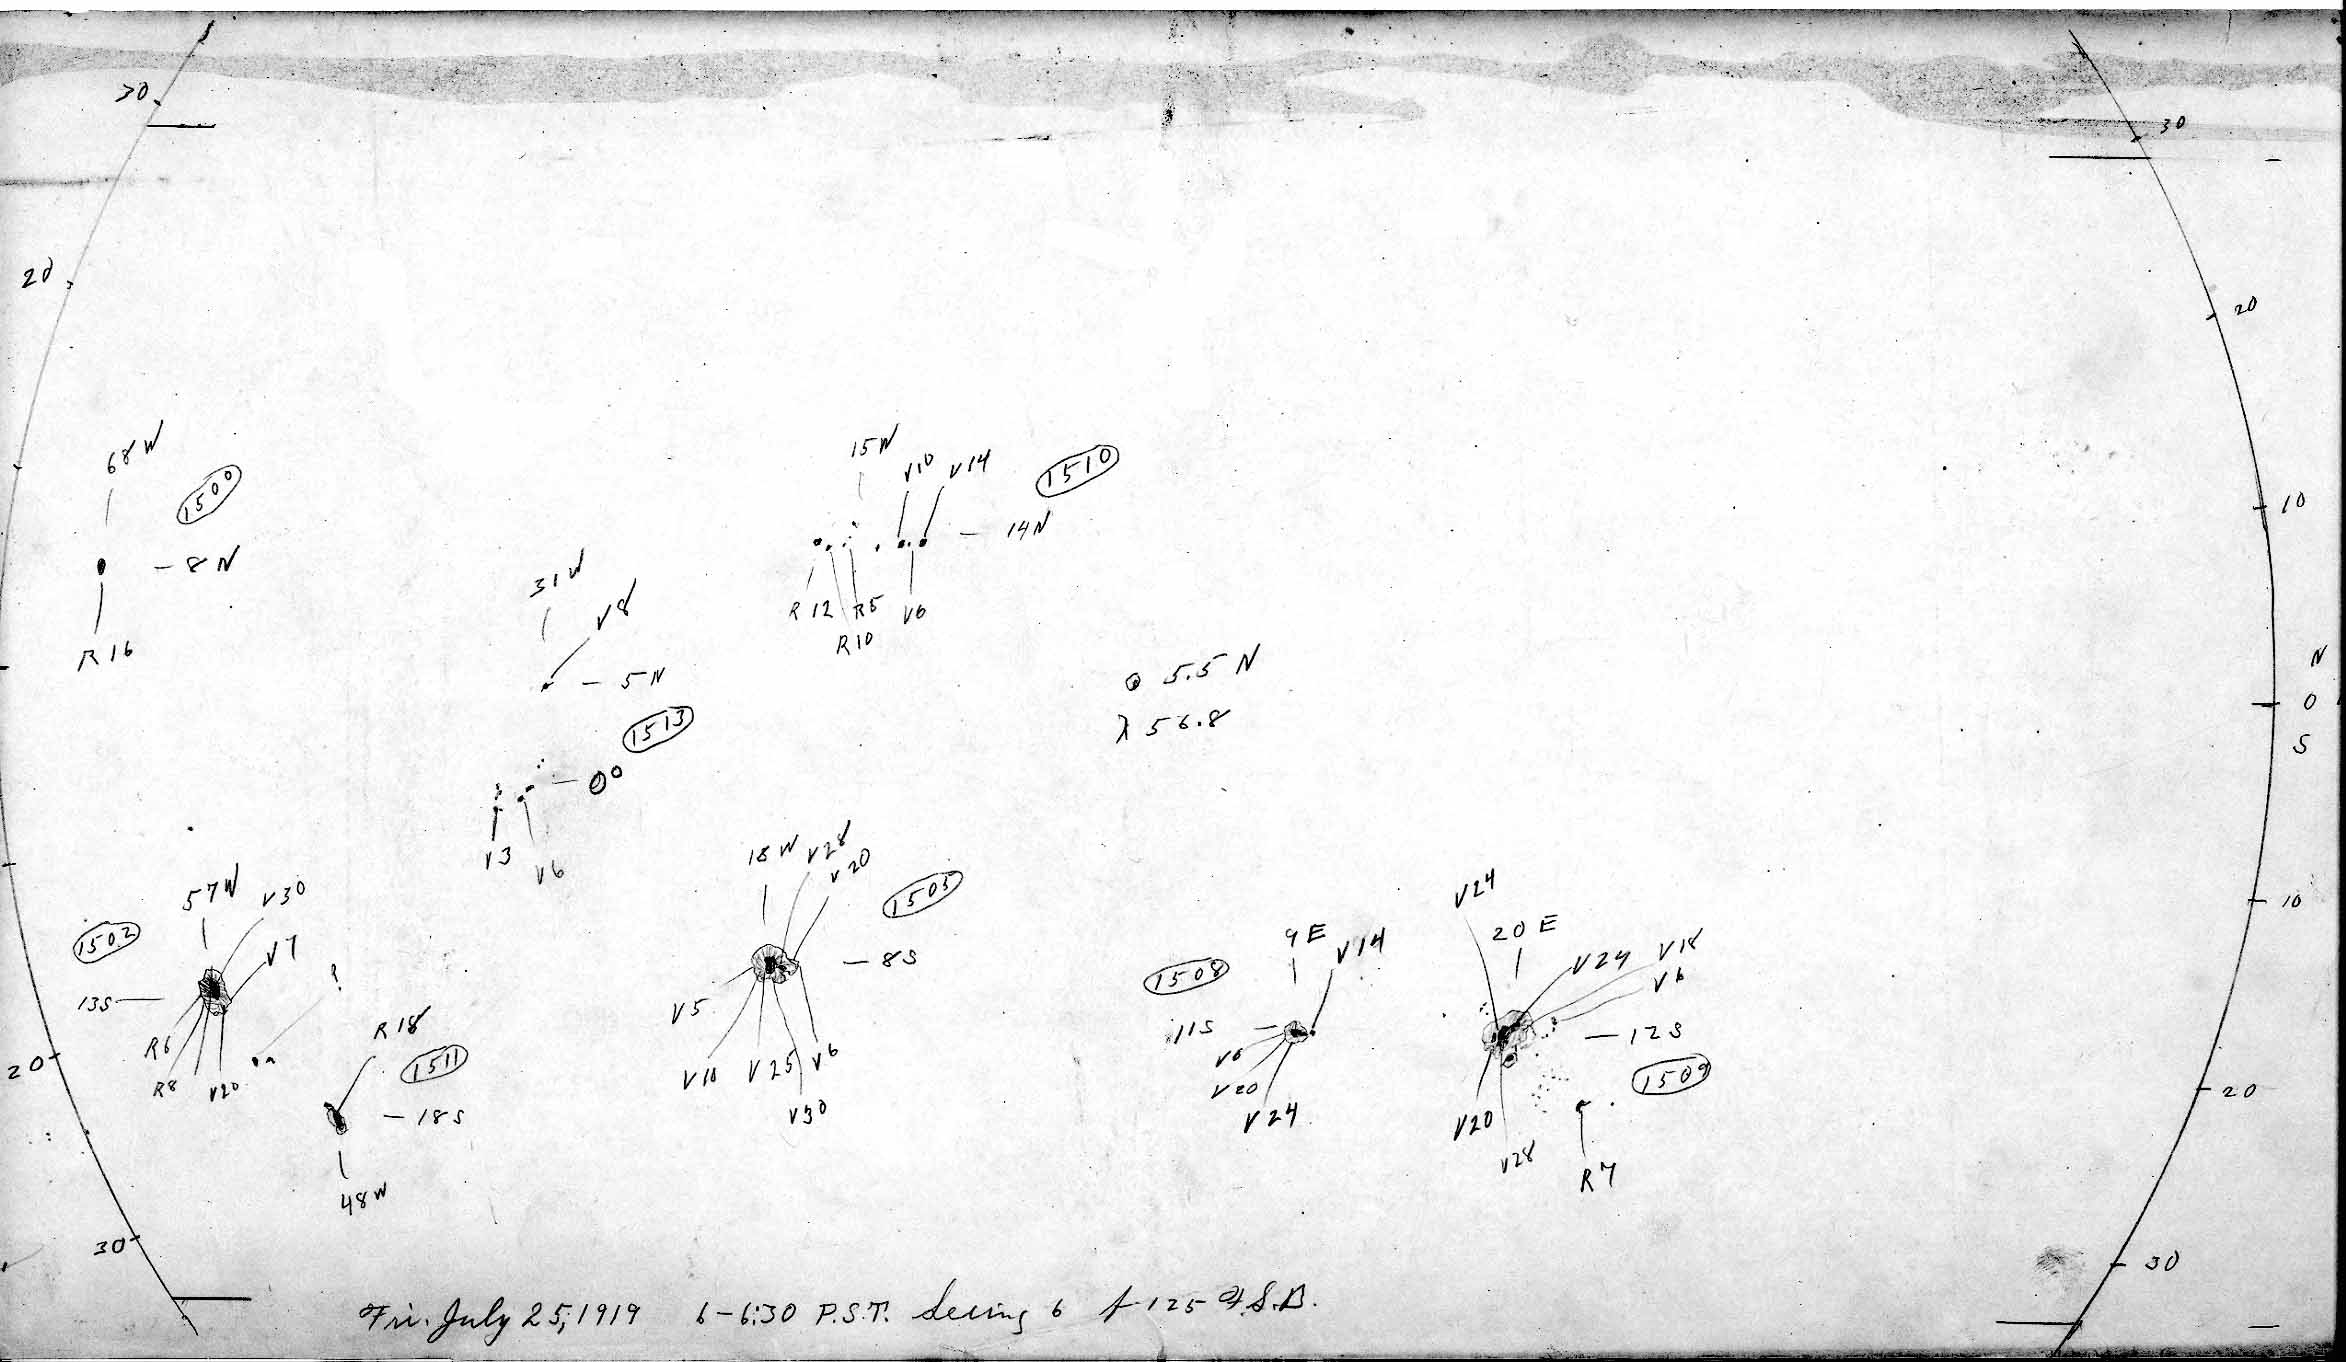 30
30
20
20
68W
1500
15W
V10
V14
1510
10
14N
8N
31W
V8
R12
R5
V6
R10
R16
5N
5.5 N
N
0
S
λ 56.8
1513
0°
V3
V6
18W
V28
V20
1505
57W
V30
V24
10
1502
V7
20 E
9 E
V14
V24
V18
8S
1508
V6
13S
?
V5
11S
12S
R6
R18
V6
V6
20
R8
V20
1511
V10
V25
V20
1509
20
18S
V30
V24
V20
V28
R7
48W
30
30
Fri. July 25, 1919 6-6:30 P.S.T. Seeing 6 f 125 F.S.B.